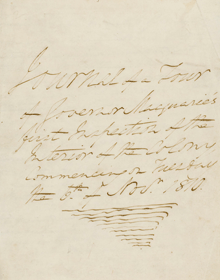 Journal of a Tour
of Governor Macquarie's
first Inspection of the
Interior of the Colony
Commencing on Tuesday
the 6th. of Novr. 1810.